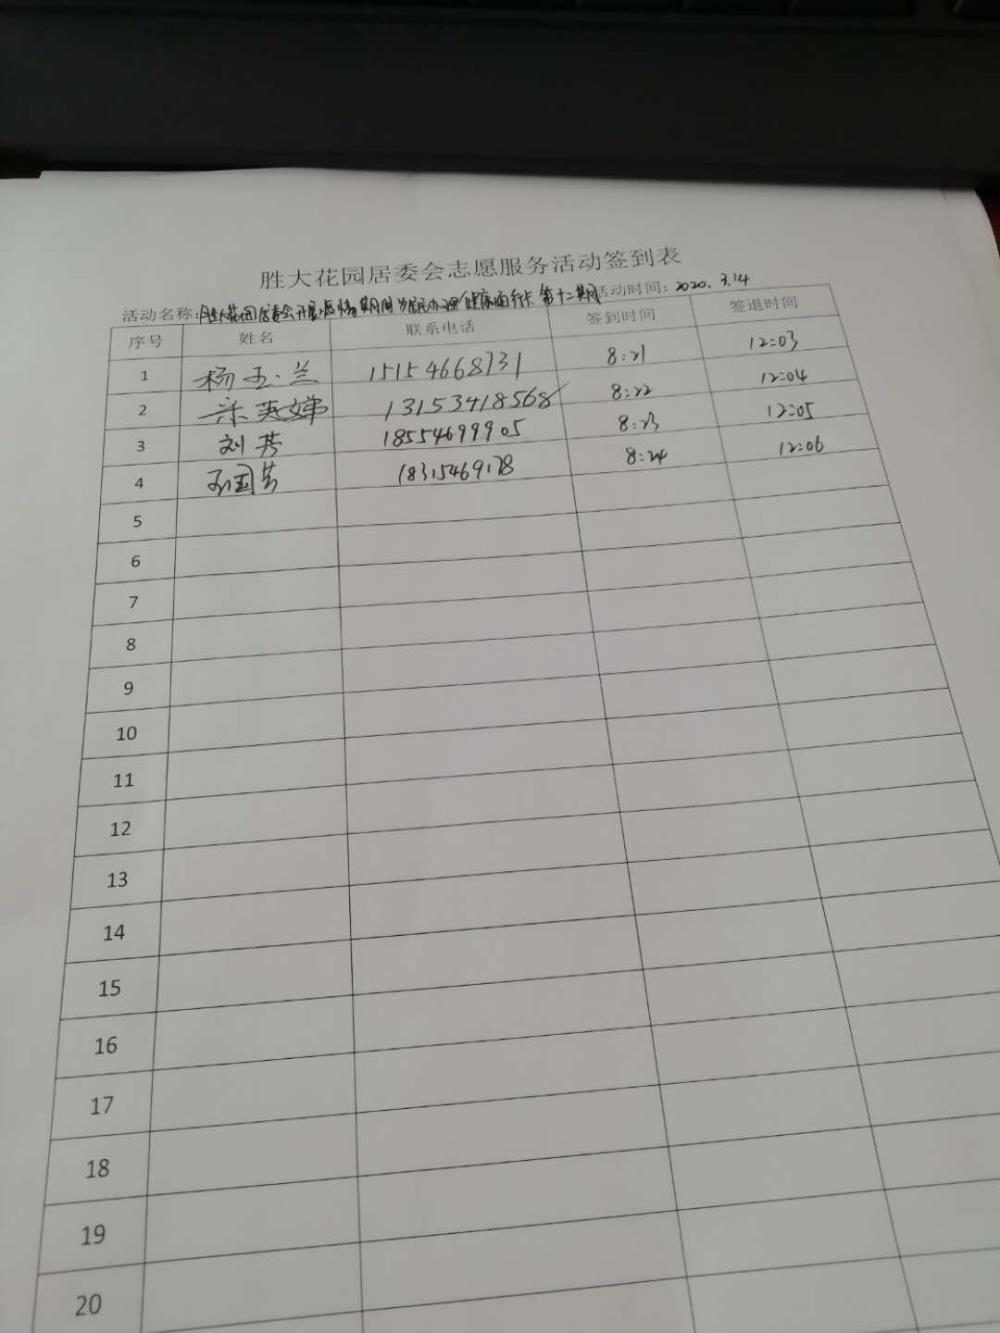 胜大花园居委会志愿服务活动签到表
活动名称:胜大花园居委会开展疫情期间为居民办理健康通行卡第十二期 活动时间:2020.3.14
序号 姓名 联系电话 签到时间 签退时间
1 杨玉兰 15154668731 8:21 12:03
2 英娣 13153418568 8:22 12:04
3 刘芳 18554699905 8:23 12:05
4 孙国芳 18315469178 8:24 12:06
5
6
7
8
9
10
11
12
13
14
15
16
17
18
19
20